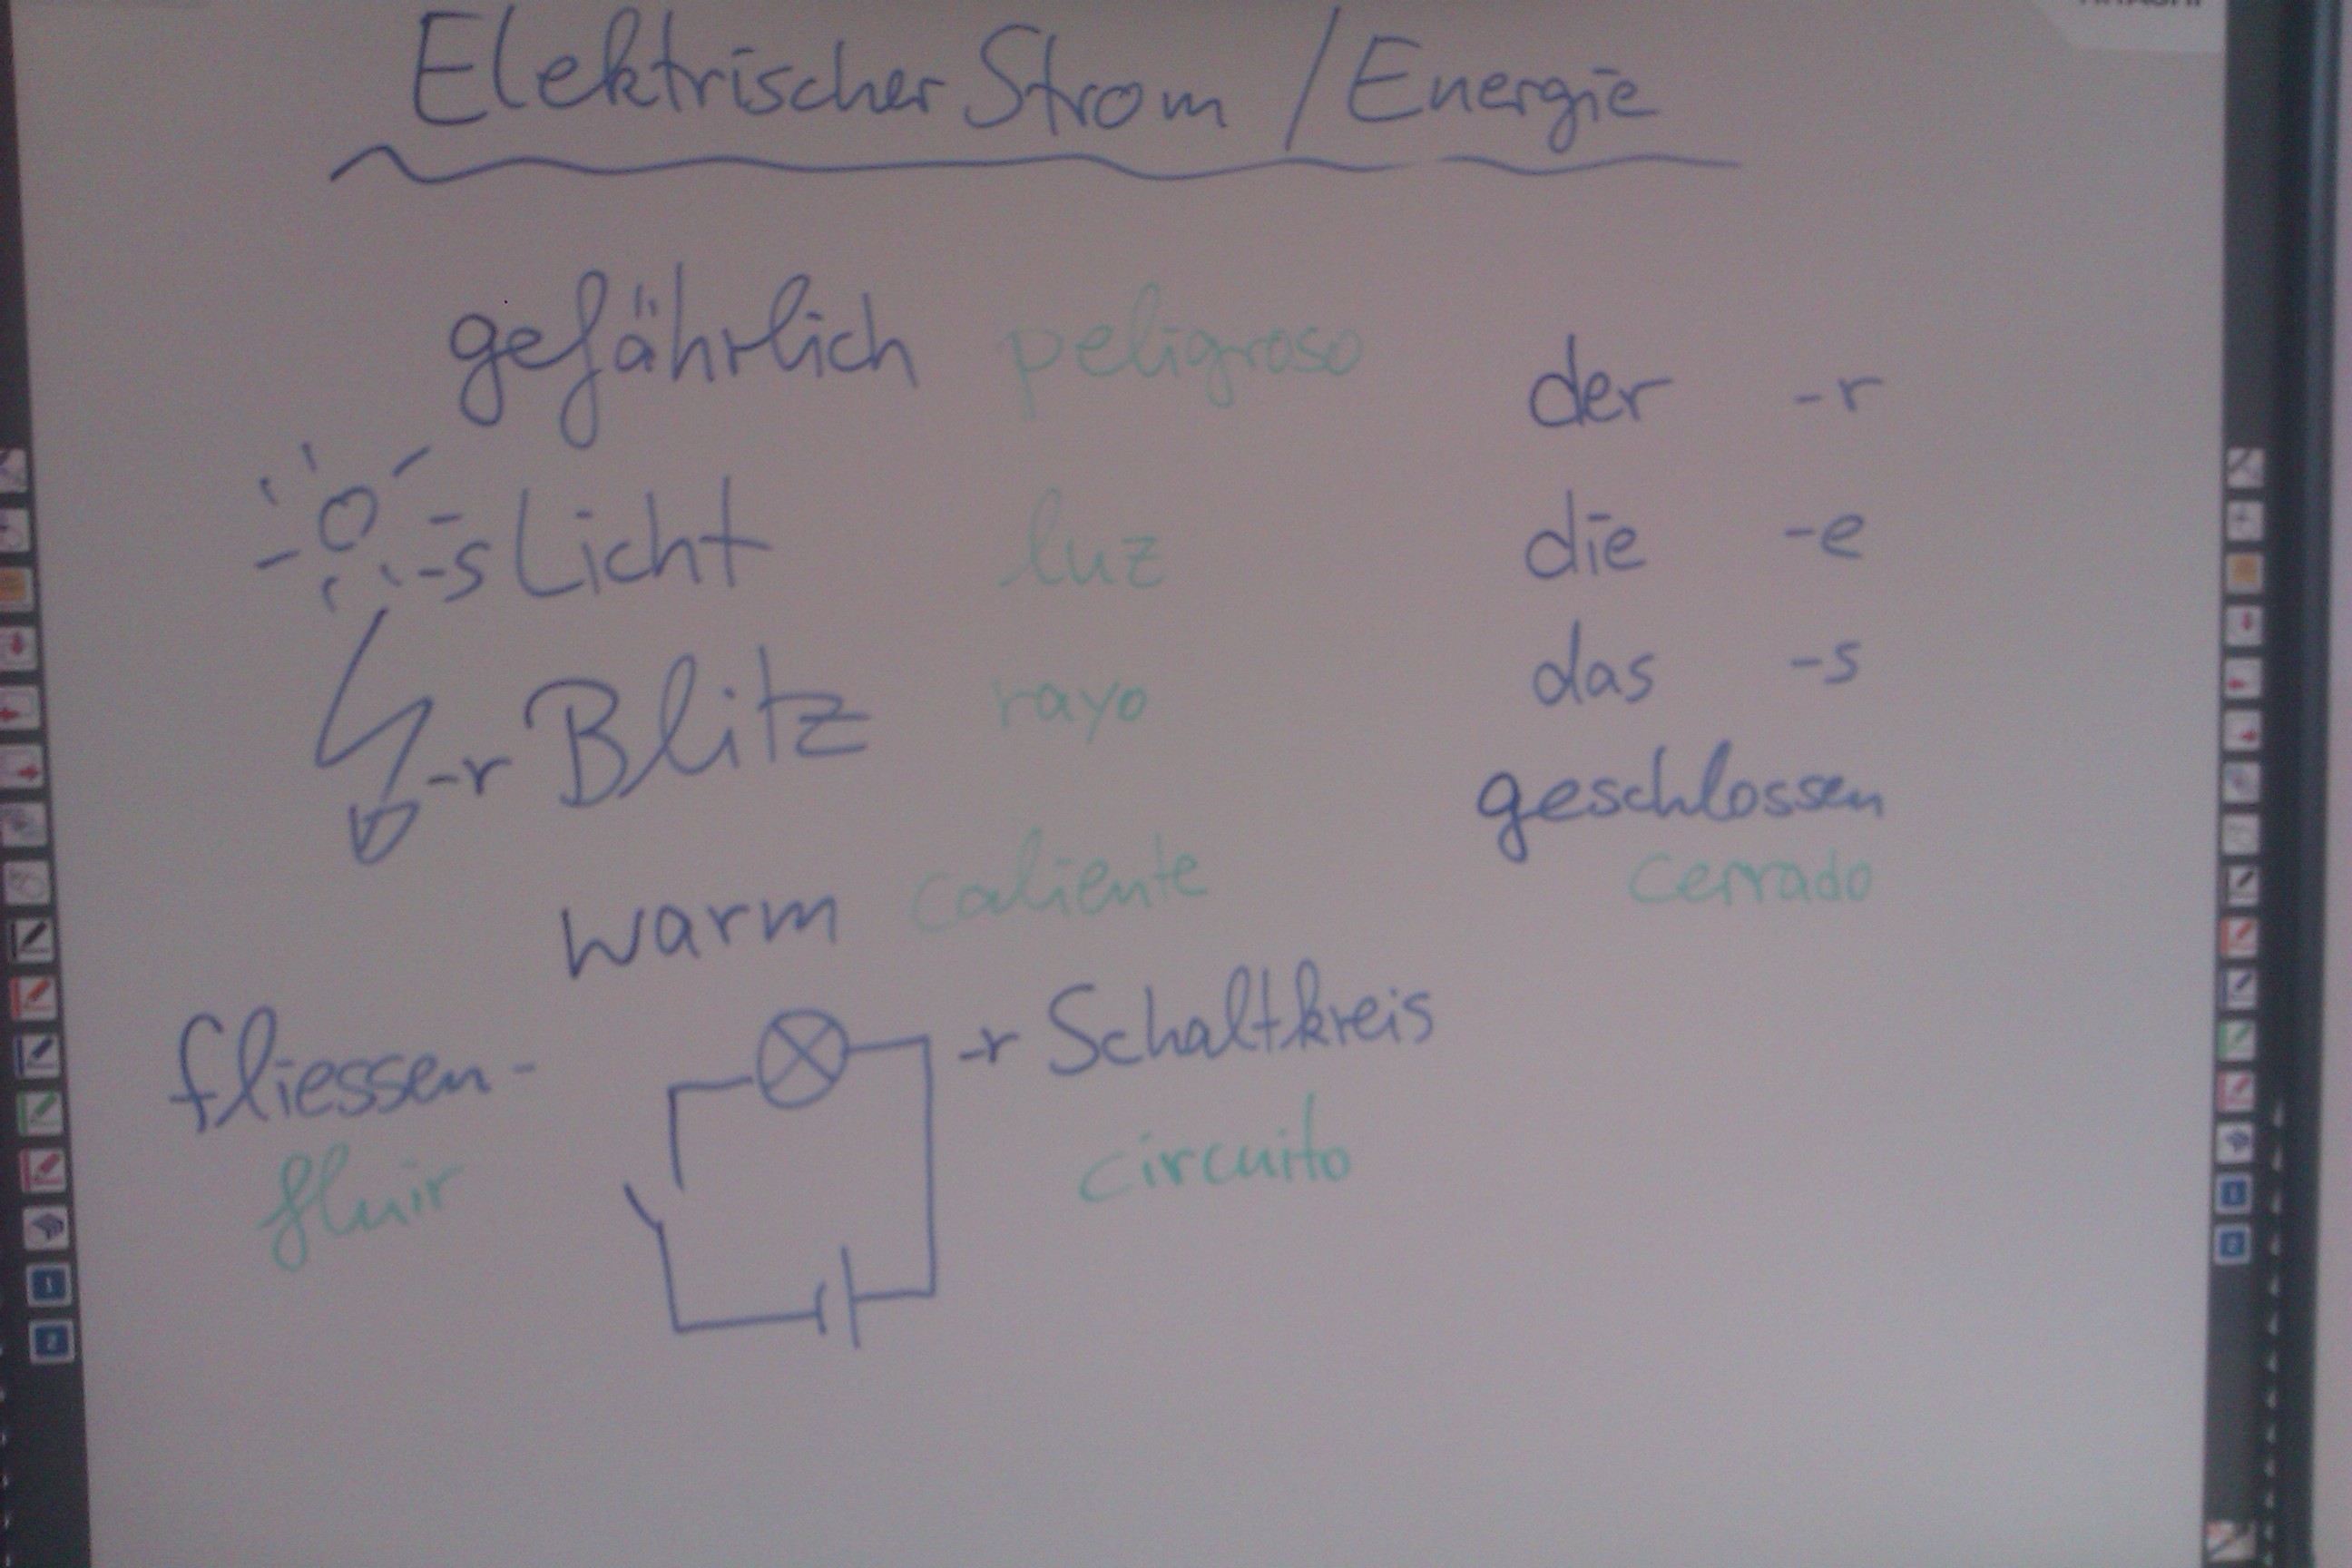 Elektrischer Strom / Energie
gefährlich peligroso
der -r
-s Licht luz
die -e
das -s
-r Blitz rayo
geschlossen
cerrado
warm caliente
fliessen -
fluir
-r Schaltkreis
circuito
1
2
1
2